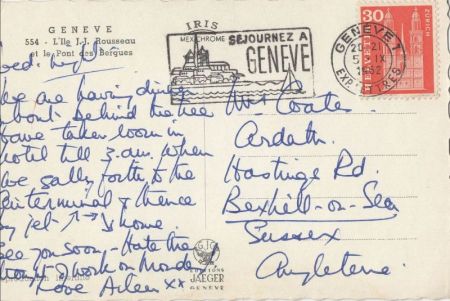 GENEVE
554 - L'Ile J.-J. Rousseau
et le Pont des Bergues
IRIS
MEXICHROME
SÉJOURNEZ A
GENÈVE
GENEVE 1
20-21
5. IX
1962
EXP. LETTRES
30
HELVETIA
ZÜRICH
Wed. night
We are having dinner
about behind the tree
have taken room in
hotel till 3. a.m. when
we sally forth to the
air terminal & thence
by jet ↑→↓ home.
See you soon - Hate the
thought of work on Monday
Love Aileen xx
Mrs Coates
Ardath
Hastings Rd.
Bexhill-on-Sea
Sussex
Angleterre
EDITIONS
JAEGER
GENÈVE